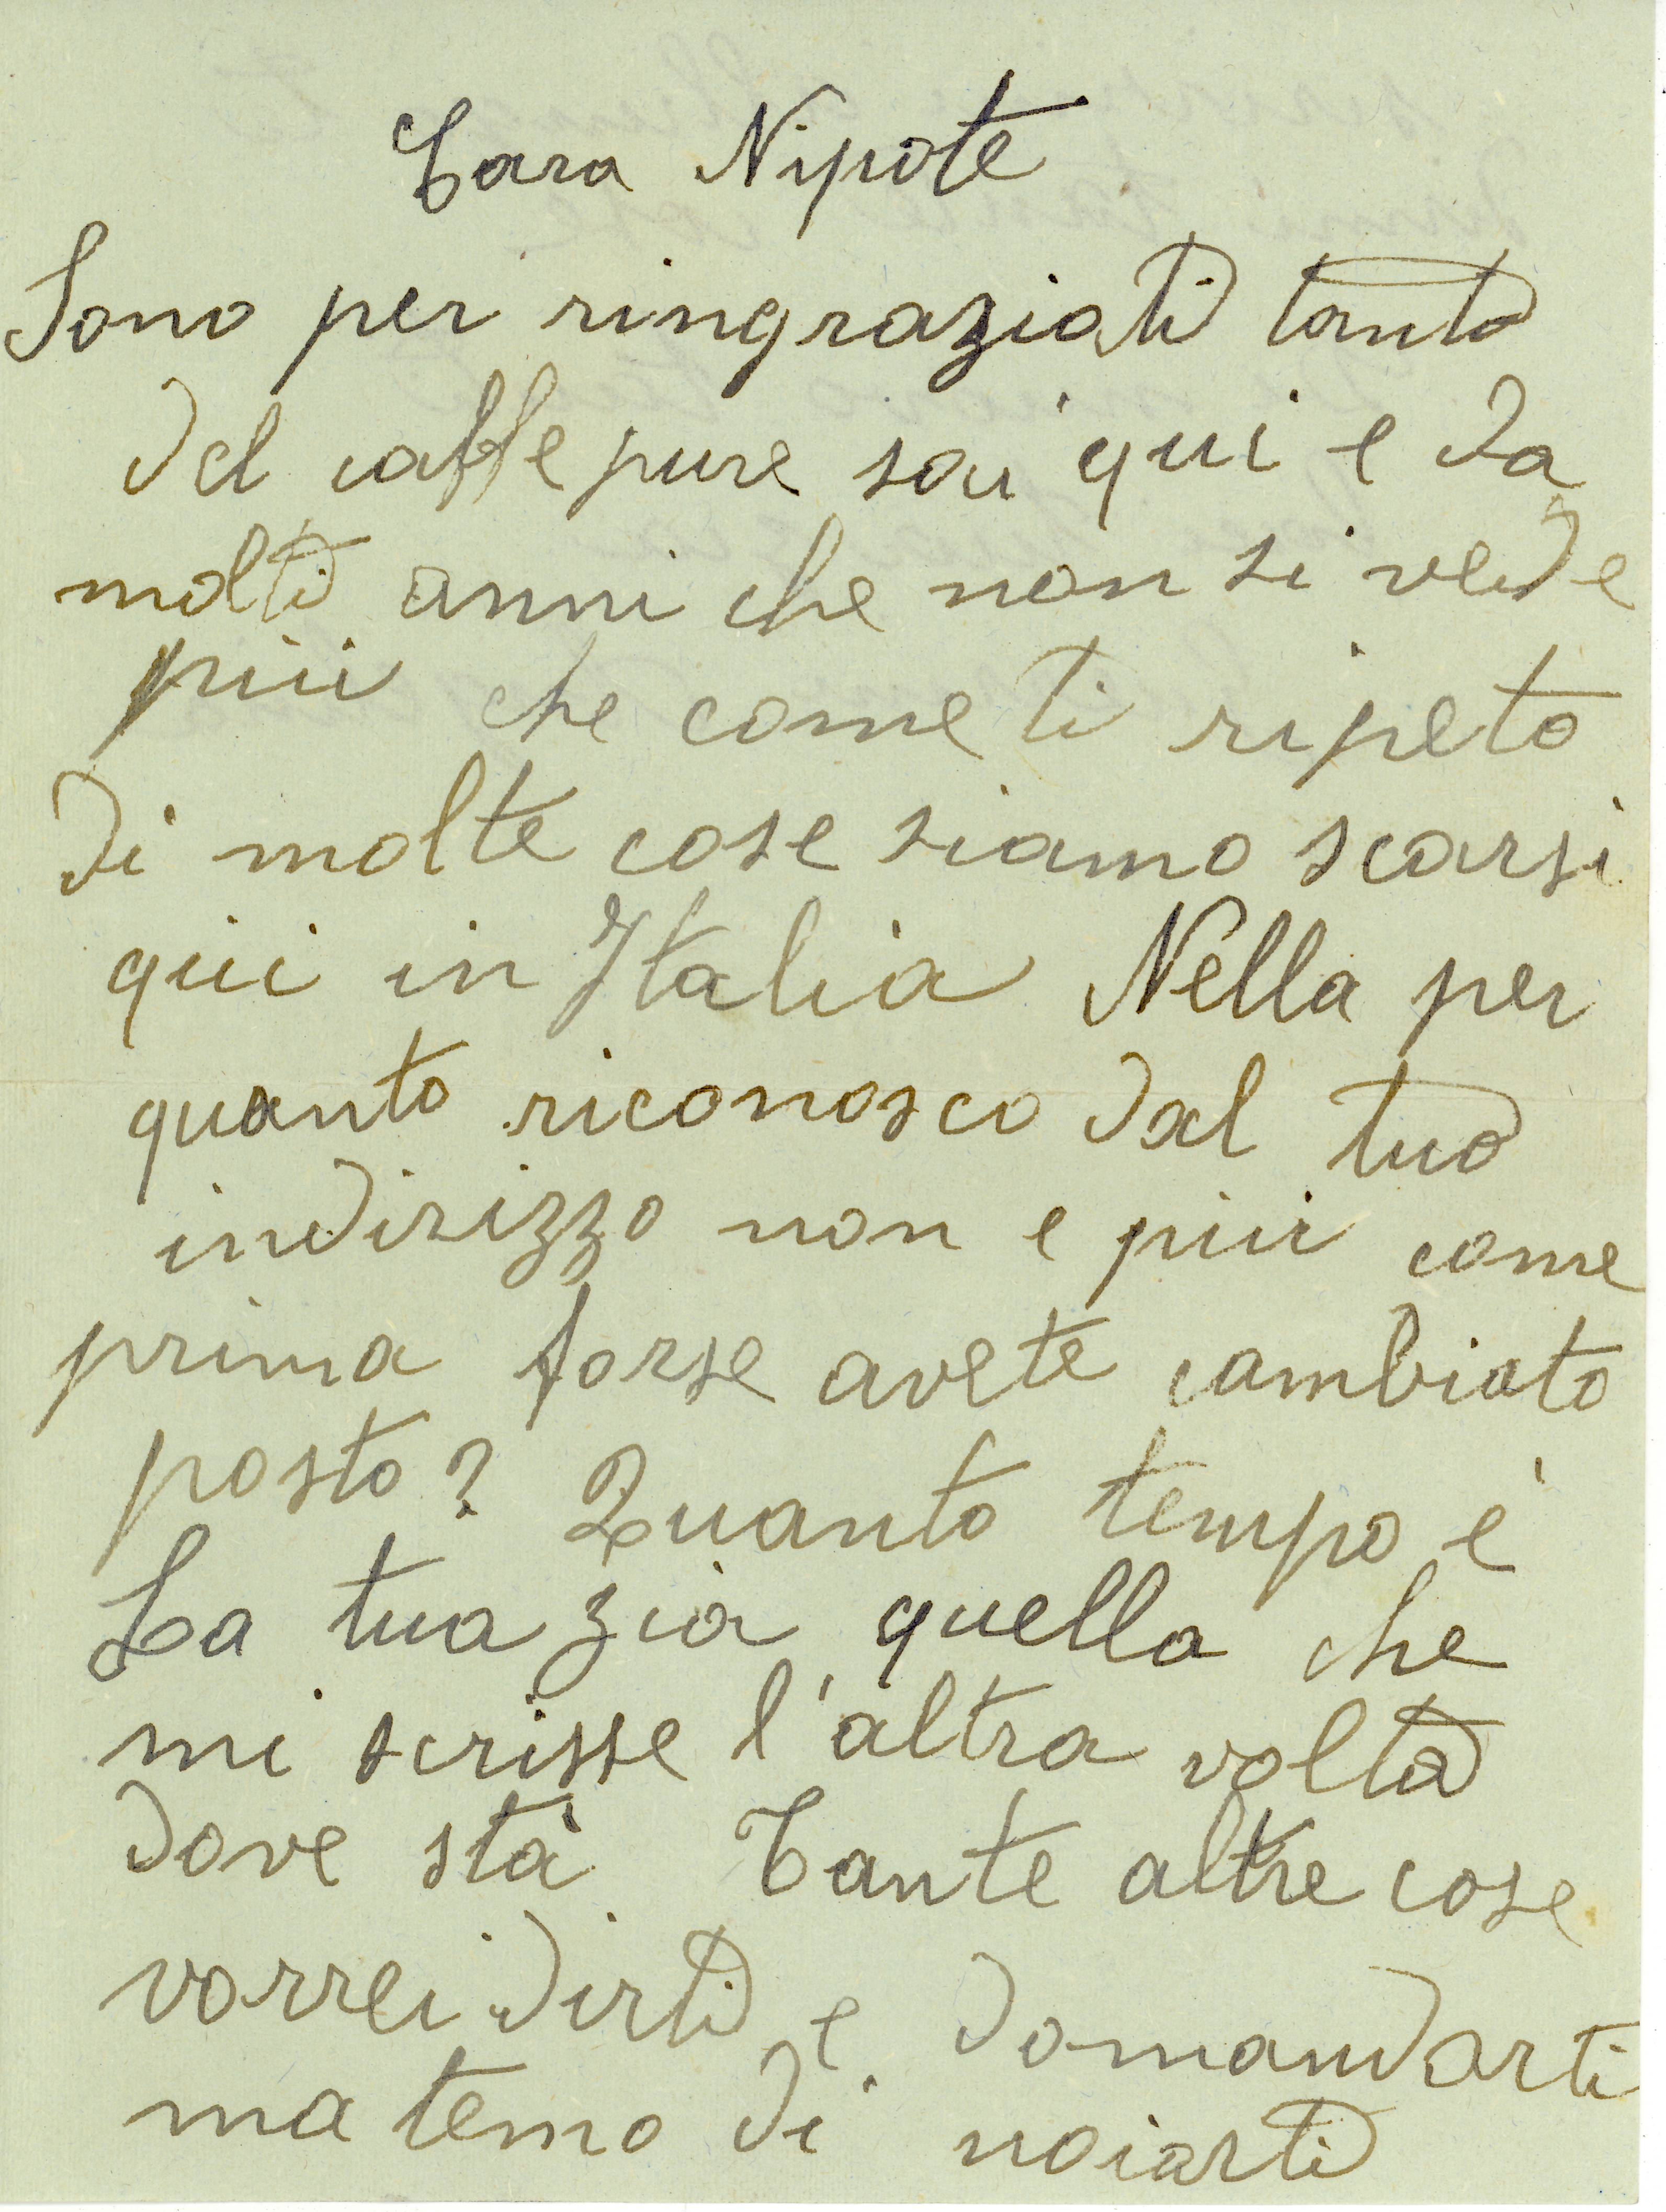 Cara Nipote
Sono per ringraziati tanto
del caffe pure sai qui e da
molti anni che non si vede
più che come ti ripeto
di molte cose siamo scarsi
qui in Italia Nella per
quanto riconosco dal tuo
indirizzo non e più come
prima forse avete cambiato
posto? Quanto tempo è
La tua zia quella che
mi scrisse l'altra volta
dove stà Tante altre cose
vorrei dirti e domandarti
ma temo di noiarti